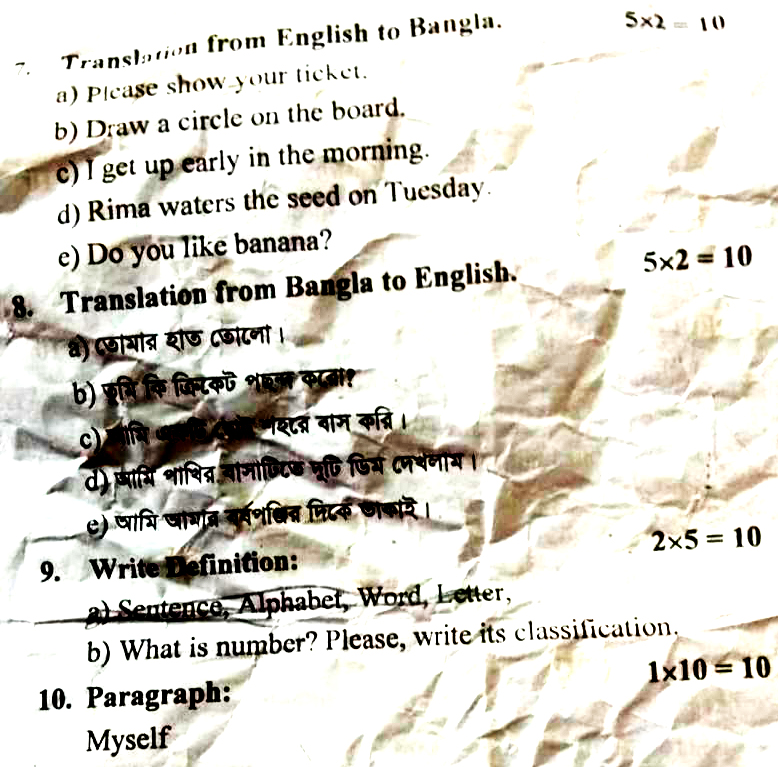 7. Translation from English to Bangla. 5×2 = 10
a) Please show your ticket.
b) Draw a circle on the board.
c) I get up early in the morning.
d) Rima waters the seed on Tuesday.
e) Do you like banana?
8. Translation from Bangla to English. 5×2 = 10
a) তোমার হাত তোলো।
b) তুমি কি ক্রিকেট পছন্দ করো?
c) আমি শহরে বাস করি।
d) আমি পাখির বাসাটিতে দুটি ডিম দেখলাম।
e) আমি আমার বর্ষপঞ্জির দিকে তাকাই।
9. Write Definition: 2×5 = 10
a) Sentence, Alphabet, Word, Letter,
b) What is number? Please, write its classification.
10. Paragraph: 1×10 = 10
Myself